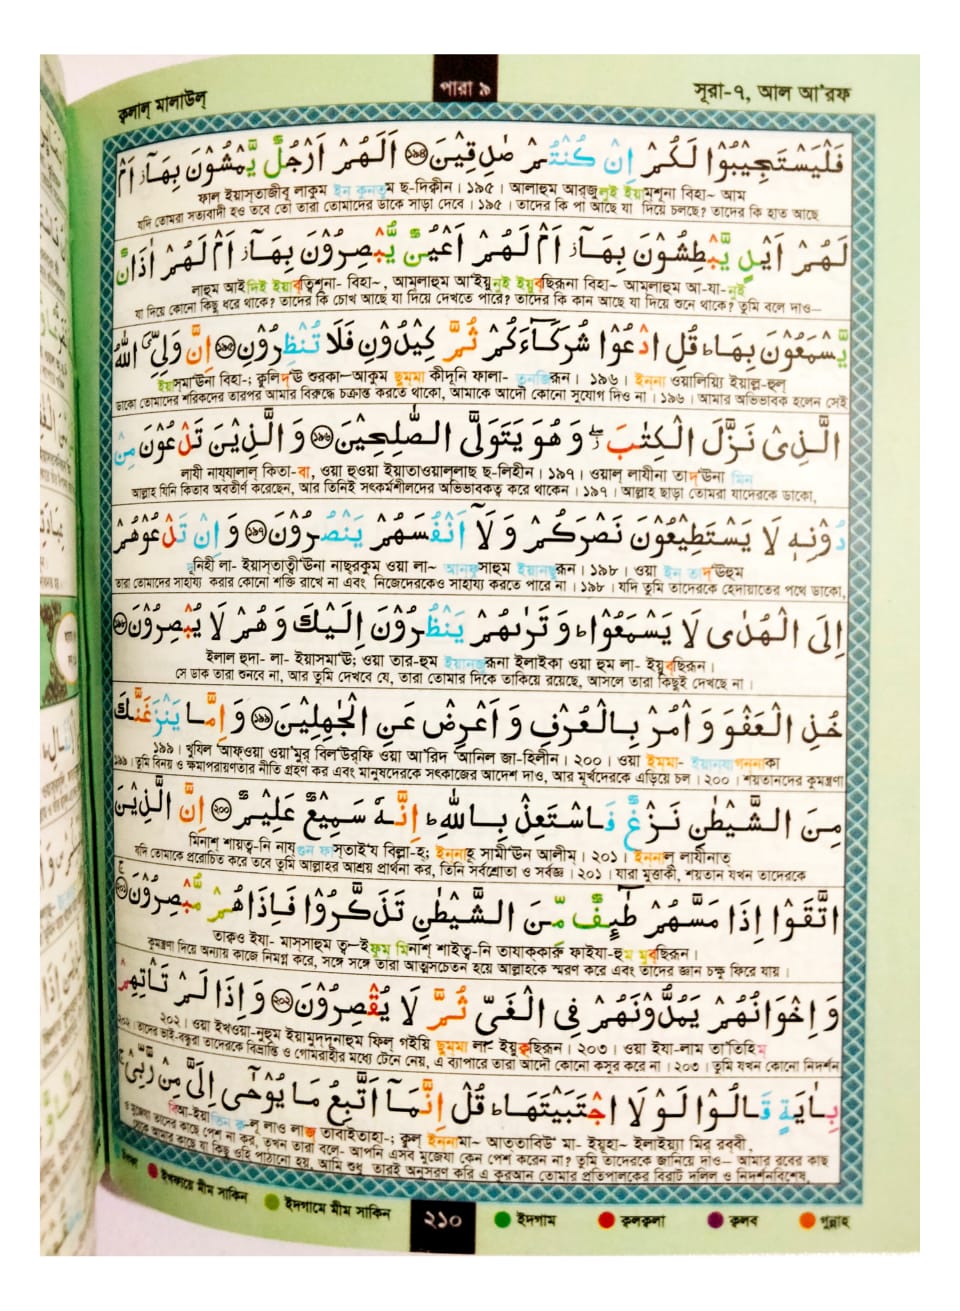 ক্বলাল্ মালাউল্
পারা ৯
সূরা-৭, আল আ'রফ
فَلْيَسْتَجِيْبُوْا لَكُمْ اِنْ كُنْتُمْ صٰدِقِيْنَ ۝١٩٤ اَلَهُمْ اَرْجُلٌ يَّمْشُوْنَ بِهَآ ز اَمْ
ফাল ইয়াস্তাজীবূ লাকুম ইন কুনতুম ছ-দিক্বীন। ১৯৫। আলাহুম আর্জুলুই ইয়ামশূনা বিহা~ আম
যদি তোমরা সত্যবাদী হও তবে তো তারা তোমাদের ডাকে সাড়া দেবে। ১৯৫। তাদের কি পা আছে যা দিয়ে চলছে? তাদের কি হাত আছে
لَهُمْ اَيْدٍ يَّبْطِشُوْنَ بِهَآ ز اَمْ لَهُمْ اَعْيُنٌ يُّبْصِرُوْنَ بِهَآ ز اَمْ لَهُمْ اٰذَانٌ
লাহুম আইদিই ইয়াব্ত্বিশূনা- বিহা~, আমলাহুম আ'ইয়ুনুই ইয়ুব্ছিরূনা বিহা~ আমলাহুম আ-যা-নুই
যা দিয়ে কোনো কিছু ধরে থাকে? তাদের কি চোখ আছে যা দিয়ে দেখতে পারে? তাদের কি কান আছে যা দিয়ে শুনে থাকে? তুমি বলে দাও—
يَّسْمَعُوْنَ بِهَا ط قُلِ ادْعُوْا شُرَكَآءَكُمْ ثُمَّ كِيْدُوْنِ فَلَا تُنْظِرُوْنِ ۝١٩٥ اِنَّ وَلِيِّ َۧ اللّٰهُ
ইয়াস্মা'ঊনা বিহা-; ক্বুলিদ্'ঊ শুরকা~আকুম ছুম্মা কীদূনি ফালা- তুনজিরূন। ১৯৬। ইন্না ওয়ালিয়্যি ইয়াল্ল-হুল্
ডাকো তোমাদের শরিকদের তারপর আমার বিরুদ্ধে চক্রান্ত করতে থাকো, আমাকে আদৌ কোনো সুযোগ দিও না। ১৯৬। আমার অভিভাবক হলেন সেই
الَّذِيْ نَزَّلَ الْكِتٰبَ ز وَ هُوَ يَتَوَلَّى الصّٰلِحِيْنَ ۝١٩٦ وَ الَّذِيْنَ تَدْعُوْنَ مِنْ
লাযী নায্যালাল্ কিতা-বা, ওয়া হুওয়া ইয়াতাওয়াল্লাছ ছ-লিহীন। ১৯৭। ওয়াল্ লাযীনা তাদ্'ঊনা মিন
আল্লাহ যিনি কিতাব অবতীর্ণ করেছেন, আর তিনিই সৎকর্মশীলদের অভিভাবকত্ব করে থাকেন। ১৯৭। আল্লাহ ছাড়া তোমরা যাদেরকে ডাকো,
دُوْنِهٖ لَا يَسْتَطِيْعُوْنَ نَصْرَكُمْ وَ لَآ اَنْفُسَهُمْ يَنْصُرُوْنَ ۝١٩٧ وَ اِنْ تَدْعُوْهُمْ
দূনিহী লা- ইয়াস্তাত্বী'ঊনা নাছ্রকুম্ ওয়া লা~ আন্ফুসাহুম ইয়ান্ছুরূন। ১৯৮। ওয়া ইন তাদ্'ঊহুম
তারা তোমাদের সাহায্য করার কোনো শক্তি রাখে না এবং নিজেদেরকেও সাহায্য করতে পারে না। ১৯৮। যদি তুমি তাদেরকে হেদায়াতের পথে ডাকো,
اِلَى الْهُدٰى لَا يَسْمَعُوْا ط وَ تَرٰىهُمْ يَنْظُرُوْنَ اِلَيْكَ وَ هُمْ لَا يُبْصِرُوْنَ ۝١٩٨
ইলাল হুদা- লা- ইয়াসমা'ঊ; ওয়া তার-হুম ইয়ানজুরূনা ইলাইকা ওয়া হুম লা- ইয়ুব্ছিরূন।
সে ডাক তারা শুনবে না, আর তুমি দেখবে যে, তারা তোমার দিকে তাকিয়ে রয়েছে, আসলে তারা কিছুই দেখছে না।
خُذِ الْعَفْوَ وَ اْمُرْ بِالْعُرْفِ وَ اَعْرِضْ عَنِ الْجٰهِلِيْنَ ۝١٩٩ وَ اِمَّا يَنْزَغَنَّكَ
১৯৯। খুযিল 'আফ্ওয়া ওয়া'মুর্ বিল'উর্ফি ওয়া আ'রিদ 'আনিল জা-হিলীন। ২০০। ওয়া ইম্মা- ইয়ানযাগান্নাকা
১৯৯। তুমি বিনয় ও ক্ষমাপরায়ণতার নীতি গ্রহণ কর এবং মানুষদেরকে সৎকাজের আদেশ দাও, আর মূর্খদেরকে এড়িয়ে চল। ২০০। শয়তানদের কুমন্ত্রণা
مِنَ الشَّيْطٰنِ نَزْغٌ فَاسْتَعِذْ بِاللّٰهِ ط اِنَّهٗ سَمِيْعٌ عَلِيْمٌ ۝٢٠٠ اِنَّ الَّذِيْنَ
মিনাশ্ শায়ত্ব-নি নায্গুন ফাস্তাই'য বিল্লা-হ্; ইন্নাহূ সামী'ঊন আলীম্। ২০১। ইন্নাল্ লাযীনাত্
যদি তোমাকে প্ররোচিত করে তবে তুমি আল্লাহর আশ্রয় প্রার্থনা কর, তিনি সর্বশ্রোতা ও সর্বজ্ঞ। ২০১। যারা মুত্তাকী, শয়তান যখন তাদেরকে
اتَّقَوْا اِذَا مَسَّهُمْ طٰٓئِفٌ مِّنَ الشَّيْطٰنِ تَذَكَّرُوْا فَاِذَا هُمْ مُّبْصِرُوْنَ ۝٢٠١ ج
তাক্বও ইযা- মাস্সাহুম ত্ব-ইফুম্ মিনাশ্ শাইত্ব-নি তাযাক্কারু ফাইযা-হুম মুব্ছিরূন।
কুমন্ত্রণা দিয়ে অন্যায় কাজে নিমগ্ন করে, সঙ্গে সঙ্গে তারা আত্মসচেতন হয়ে আল্লাহকে স্মরণ করে এবং তাদের জ্ঞান চক্ষু ফিরে যায়।
وَ اِخْوَانُهُمْ يَمُدُّوْنَهُمْ فِي الْغَيِّ ثُمَّ لَا يُقْصِرُوْنَ ۝٢٠٢ وَ اِذَا لَمْ تَاْتِهِمْ
২০২। ওয়া ইখওয়া-নুহুম ইয়ামুদ্দূনাহুম ফিল্ গইয়ি ছুম্মা লা- ইয়ুক্বছিরূন। ২০৩। ওয়া ইযা-লাম তা'তিহিম্
২০২। তাদের ভাই-বন্ধুরা তাদেরকে বিভ্রান্তি ও গোমরাহীর মধ্যে টেনে নেয়, এ ব্যাপারে তারা আদৌ কোনো কসুর করে না। ২০৩। তুমি যখন কোনো নিদর্শন
بِاٰيَةٍ قَالُوْا لَوْ لَا اجْتَبَيْتَهَا ط قُلْ اِنَّمَآ اَتَّبِعُ مَا يُوْحٰٓى اِلَيَّ مِنْ رَّبِّيْ ج
বিআ-ইয়াতিন ক্ব-লূ লাও লাজ্ তাবাইতাহা-; ক্বুল্ ইন্নামা~ আত্তাবিউ' মা- ইয়ূহা~ ইলাইয়্যা মির্ রব্বী,
ও মুজেযা তাদের কাছে পেশ না কর, তখন তারা বলে- আপনি এসব মুজেযা কেন পেশ করেন না? তুমি তাদেরকে জানিয়ে দাও— আমার রবের কাছ
থেকে আমার কাছে যা কিছু ওহি পাঠানো হয়, আমি শুধু তারই অনুসরণ করি এ কুরআন তোমার প্রতিপালকের বিরাট দলিল ও নিদর্শনবিশেষ,
ইখফায়ে মীম সাকিন
ইদগামে মীম সাকিন
২১০
ইদগাম
ক্বলক্বলা
ক্বলব
গুন্নাহ